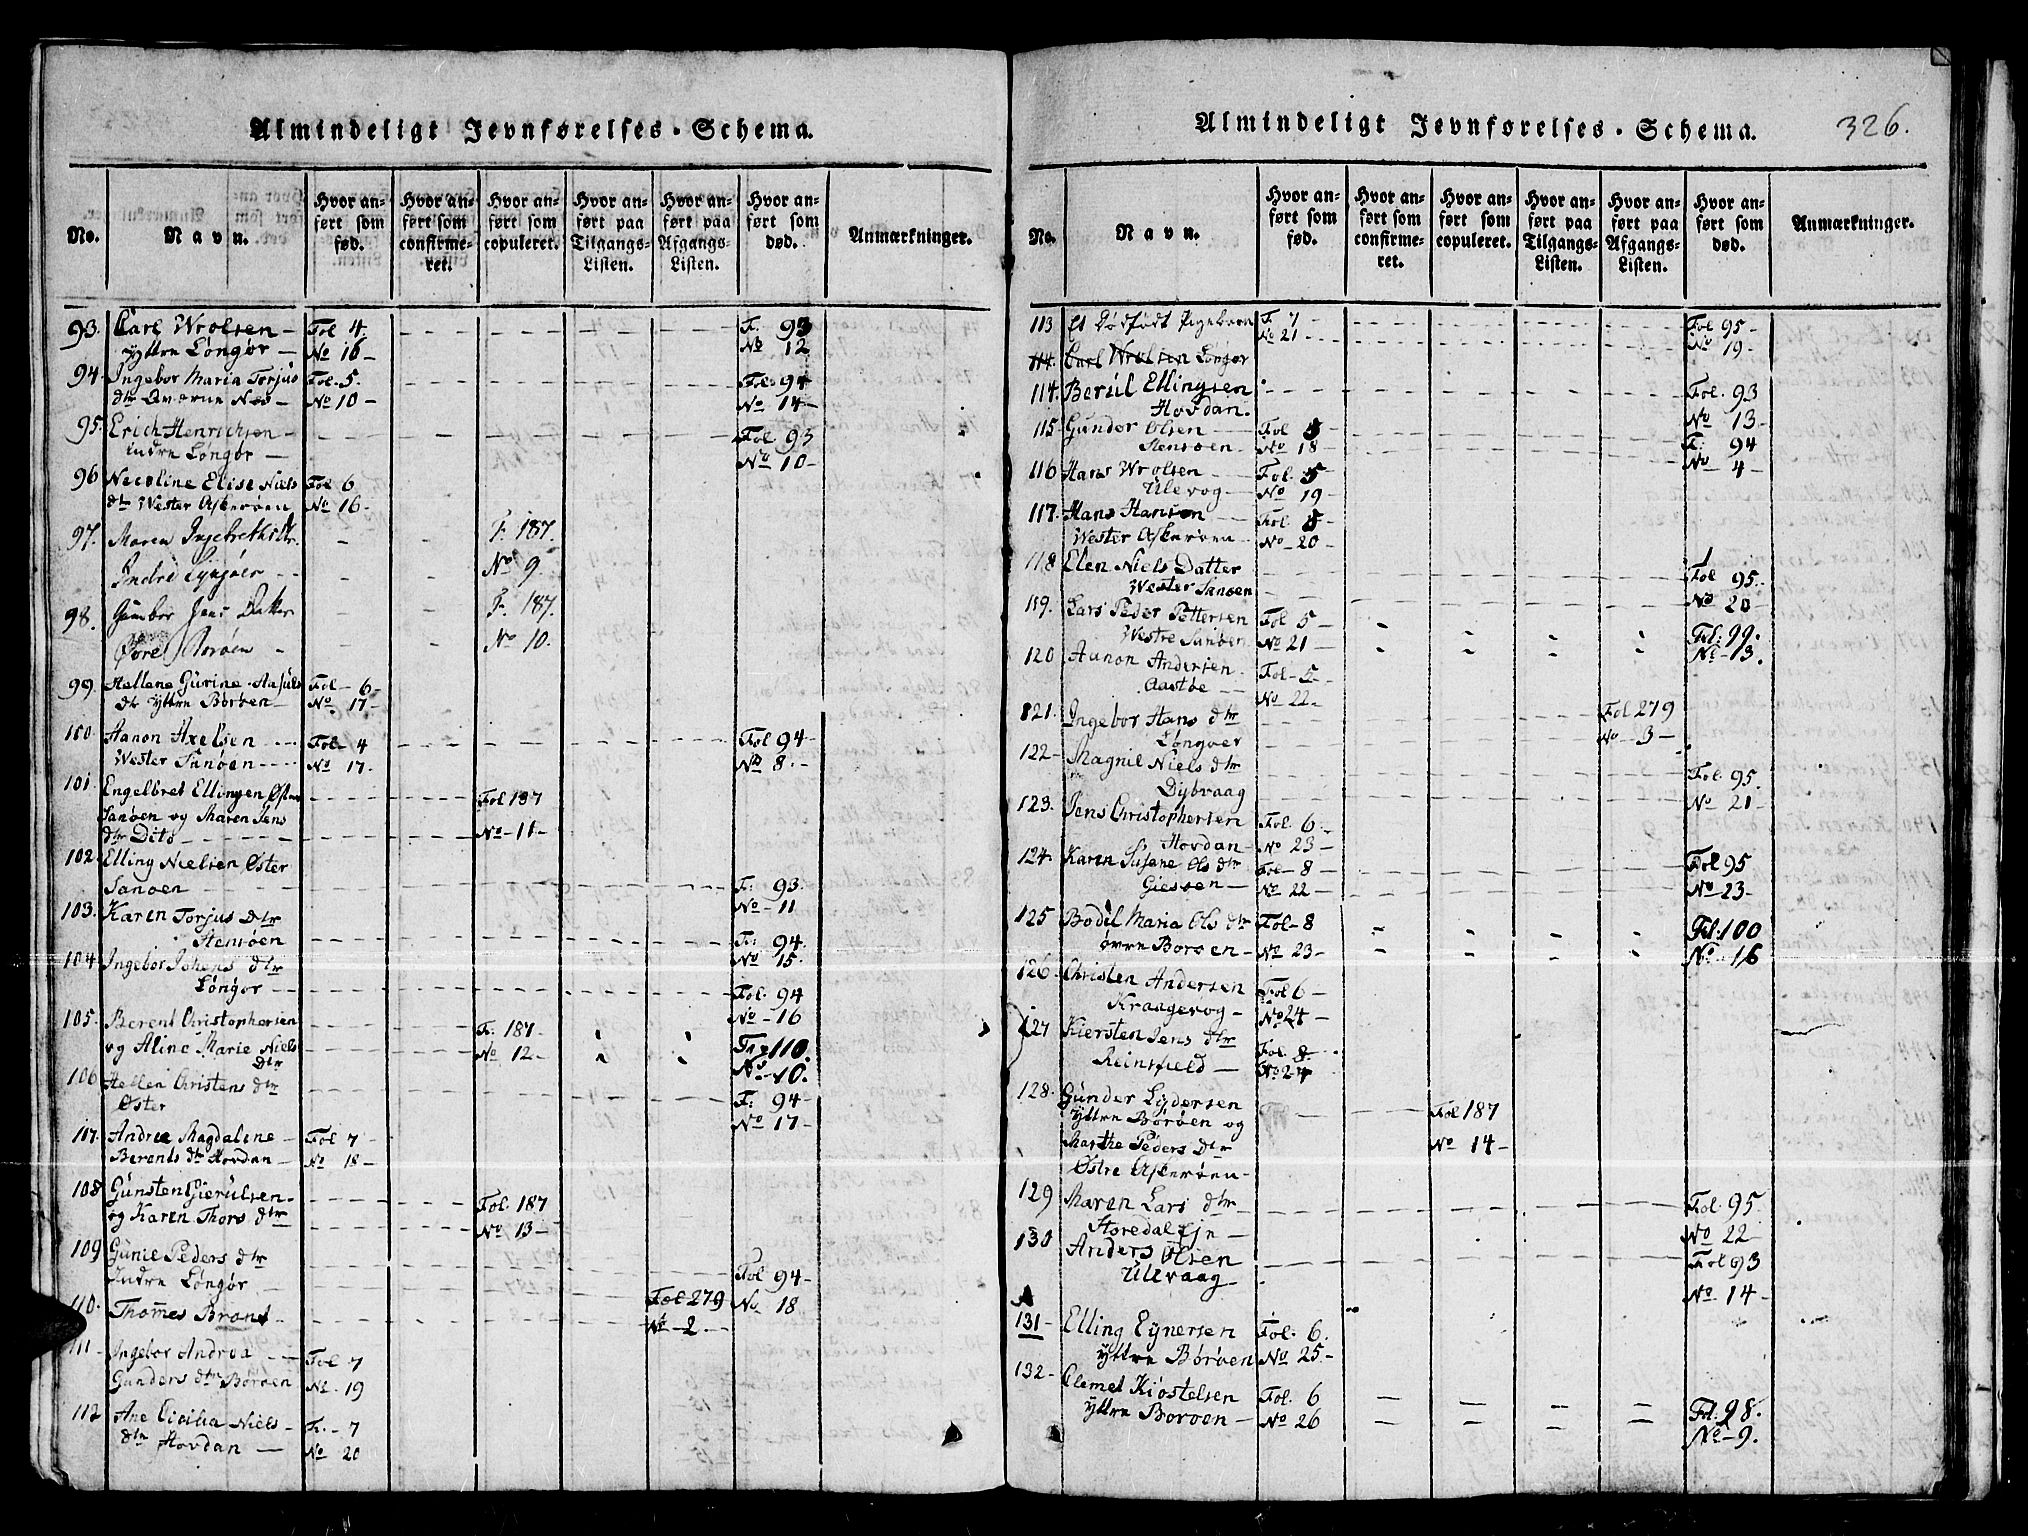 Almindeligt Jevnførelses-Schema.
No.
Navn.
Hvor anført som fød.
Hvor anført som confirmeret.
Hvor anført som copuleret.
Hvor anført paa Tilgangs-Listen.
Hvor anført paa Afgangs-Listen.
Hvor anført som død.
Anmærkninger.
93. Carl Wrolsen – Fol 4 F. 93
yttre Løngør – No 16 – No 12
94. Ingebor Maria Torjus Fol. 5. Fol. 94
dtr Næs – No 10 – No 14 –
95. Erich Henrichsen – Fol 93
indre Løngør – No 10 –
96 Nicoline Elise Niels Fol 6
dtr Wester Askerøen No 16 –
97. Maren Ingebrethsdtr. F. 187.
Indre Lyngøer No 9.
98. Gumbor Jens Datter F. 187.
Borøen No 10.
99. Hellene Gurine Fol – 6 –
dtr yttre Børøen – No – 17 –
100. Aanon Axelsen Fol – 4 Fol 94 –
Wester Sanøen No 17. No 8. –
101. Engelbret Ellingsen Øster Fol 187
Sanøen og Maren Jens
dtr Dito No – 11 –
102. Elling Nielsen Øster
Sanøen F. 93.
No – 11
103. Karen Torjus Dtr
Stensøen F. 94.
No 15.
104 Ingebor Johans dtr
Løngør Fol. 94
No – 16
105. Berent Christophersen F. 187 –
og Aline Marie Niels No – 12 – Fr 110.
Dtr No – 10.
106 Hellen Christens dtr
Øster F. 94 –
No 17 –
117. Andrea Magdalene – Fol 7
Berents dtr Hovdan – No 18 –
108 Gunsten Gierulsen – Fol. 187
og Karen Thors dtr No – 13 –
109 Gunie Peders dtr
Indre Løngør – Fol 94 –
No 18
110. Thomes Bront – Fol 279
No – 2 –
111 – Ingebor Andrea Fol 7
Gunders dtr Børøen No. 19
112 Ane Cicilia Niels – F. – 7
dtr Hovdan – No 20
Almindeligt Jevnførelses-Schema. 326.
No.
Navn.
Hvor anført som fød.
Hvor anført som confirmeret.
Hvor anført som copuleret.
Hvor anført paa Tilgangs-Listen.
Hvor anført paa Afgangs-Listen.
Hvor anført som død.
Anmærkninger.
113 Et Dødfødt Pigebarn F. 7 Fol 95 –
No 21 – No 19 –
114. Carl Wrolsen Løngør
114. Berul Ellingsen Fol. 93
Hovdan. No 13 –
115 Gunder Olsen – Fol 5 F. 94
Stensøen – No 18 – No – 4 –
116 Hans Wrolsen – Fol. 5 –
Ulevog – No 19 –
117. Hans Hansen Fol. 5
Wester Askerøen – No – 20 –
118 Elen Niels Datter Fol 95.
Wester Sanøen No 20 –
119. Lars Peder Pettersen Fol 5 – Fol: 99.
Westre Sanøen No 21 – No – 13.
120 Aanon Andersen Fol – 5 –
Aastøe No 22 –
821. Ingebor Hans dtr Fol 279
Løngøer No – 3 –
122 – Magnil Niels dtr Fol. 95
Dybvaag No 21 –
123. Jens Christophersen Fol. 6 –
Hovdan – No 23 –
124. Karen Susene Ols dtr Fol – 8 – Fol 95
Giesøen – No 22 – No – 23 –
125 Bodel Maria Ols dtr Fol – 8 Fol. 100
øvre Borøen – No 23 – No – 16
126. Christen Andersen Fol 6 –
Kraagevog – No 24 –
127 Kiersten Jens dtr Fol. 8 –
Reinsfield – No 24
128. Gunder Lydersen Fol 187
yttre Børøen og
Marthe Peders Dtr No 14 –
Østre Askerøen –
129 Maren Lars dtr Fol. 95
Storedal Ejn – No 22 –
130 Anders Olsen Fol 93
Ulevaag – No – 14 –
131 – Elling Eynersen Fol. 6.
yttre Børøen No 25 –
132 – Clemet Kiøstelsen Fol. 6 Fol: 98.
yttre Borøen – No 26 No – 9.